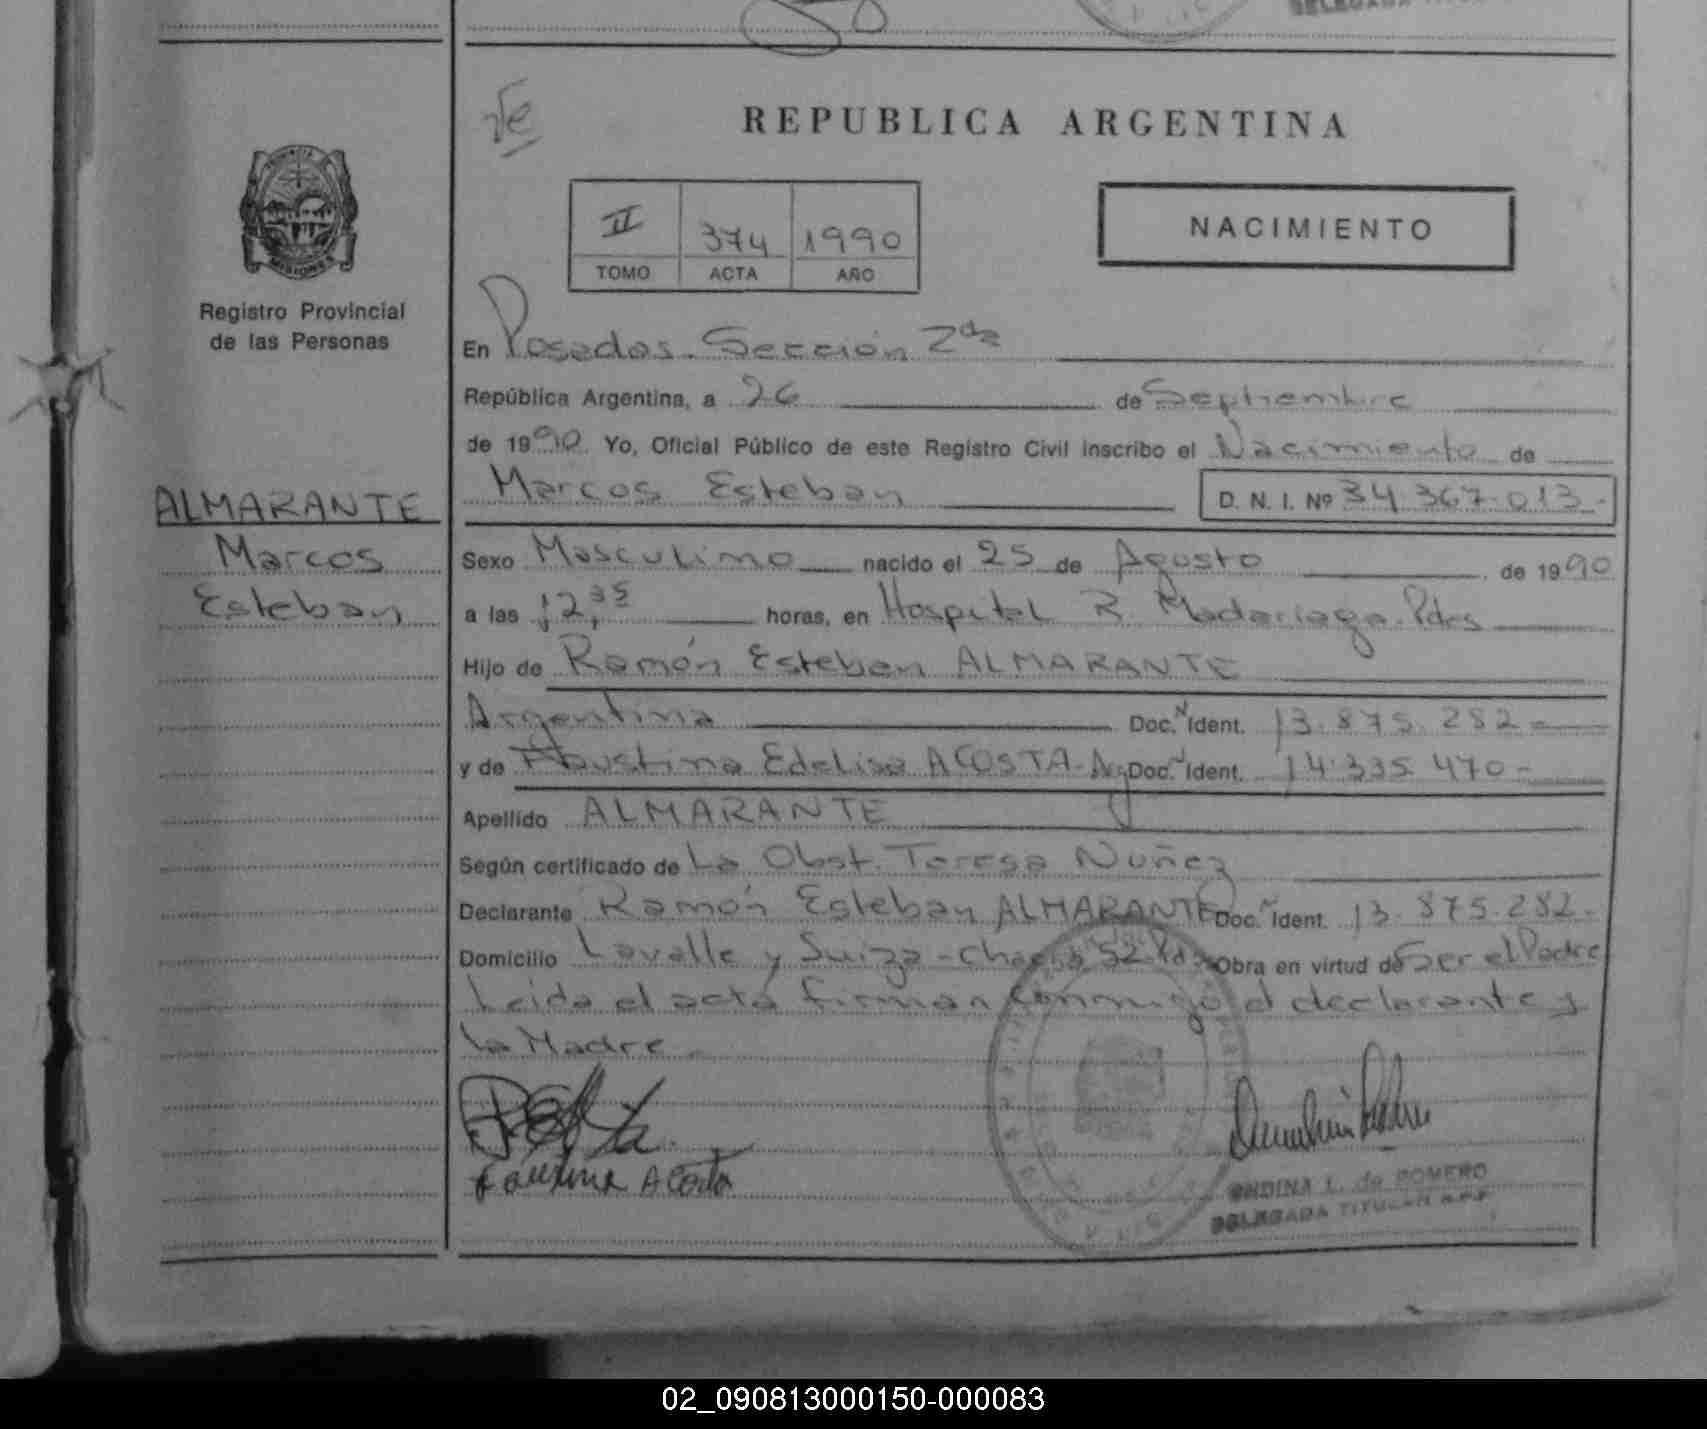 REPUBLICA ARGENTINA
II 374 1990
TOMO ACTA AÑO
NACIMIENTO
PROVINCIA
MISIONES
Registro Provincial
de las Personas
ALMARANTE
Marcos
Esteban
En Posadas. Sección 2da
República Argentina, a 26 de Septiembre
de 1990. Yo, Oficial Público de este Registro Civil inscribo el Nacimiento de
Marcos Esteban D. N. I. Nº 34.367.013.-
Sexo Masculino nacido el 25 de Agosto de 1990
a las 12,35 horas, en Hospital R. Madariaga. Pdas
Hijo de Ramón Esteban ALMARANTE
Argentina Doc. Ident. 13.875.282-
y de Faustina Edelisa ACOSTA-Arg Doc. Ident. 14.335.470-
Apellido ALMARANTE
Según certificado de La Obst. Teresa Nuñez
Declarante Ramón Esteban ALMARANTE Doc. Ident. 13.875.282-
Domicilio Lavalle y Suiza-Chacra 52. Pdas Obra en virtud de Ser el Padre
Leida el acta firman conmigo el declarante y
la Madre.-
Faustina Acosta
ONDINA L. de ROMERO
DELEGADA TITULAR R.P.P.
02_090813000150-000083